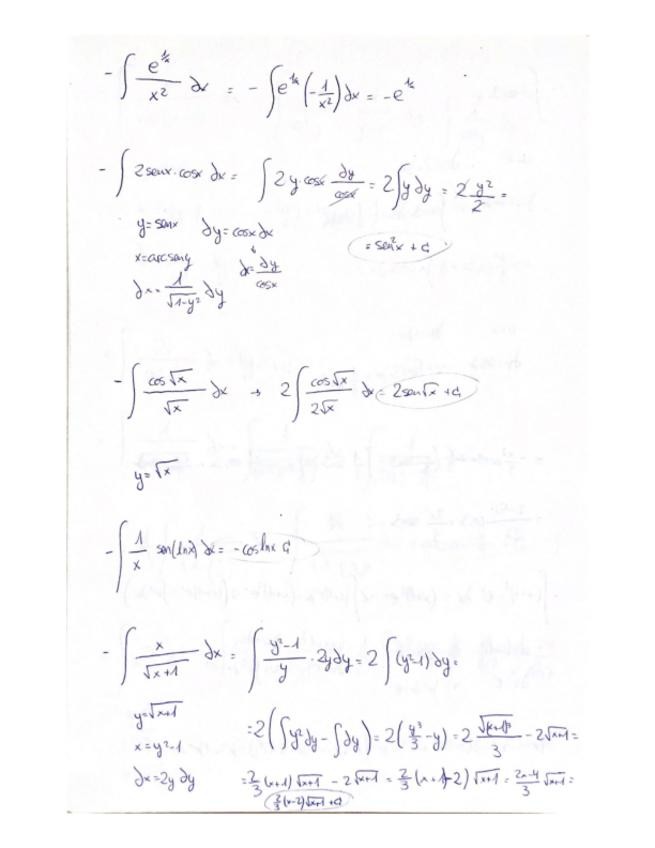 - ∫ e^(1/x)/x² dx = - ∫ e^(1/x) (-1/x²) dx = -e^(1/x)
- ∫ 2senx·cosx dx = ∫ 2y·cosx dy/cosx = 2∫y dy = 2 y²/2 =
y=senx dy=cosxdx = sen²x + C
x=arcseny dx=dy/cosx
dx=1/√(1-y²) dy
- ∫ cos√x/√x dx → 2∫ cos√x/2√x dx = 2sen√x + C
y=√x
- ∫ 1/x sen(lnx) dx = -coslnx C
- ∫ x/√(x+1) dx = ∫ (y²-1)/y · 2ydy = 2∫(y²-1)dy =
y=√(x+1) =2(∫y²dy - ∫dy) = 2(y³/3 - y) = 2 √(x+1)³/3 - 2√(x+1) =
x=y²-1
dx=2y dy =2/3 (x+1)√(x+1) - 2√(x+1) = 2/3 (x+1-2)√(x+1) = (2x-4)/3 √(x+1) =
2/3 (x-2)√(x+1) + C